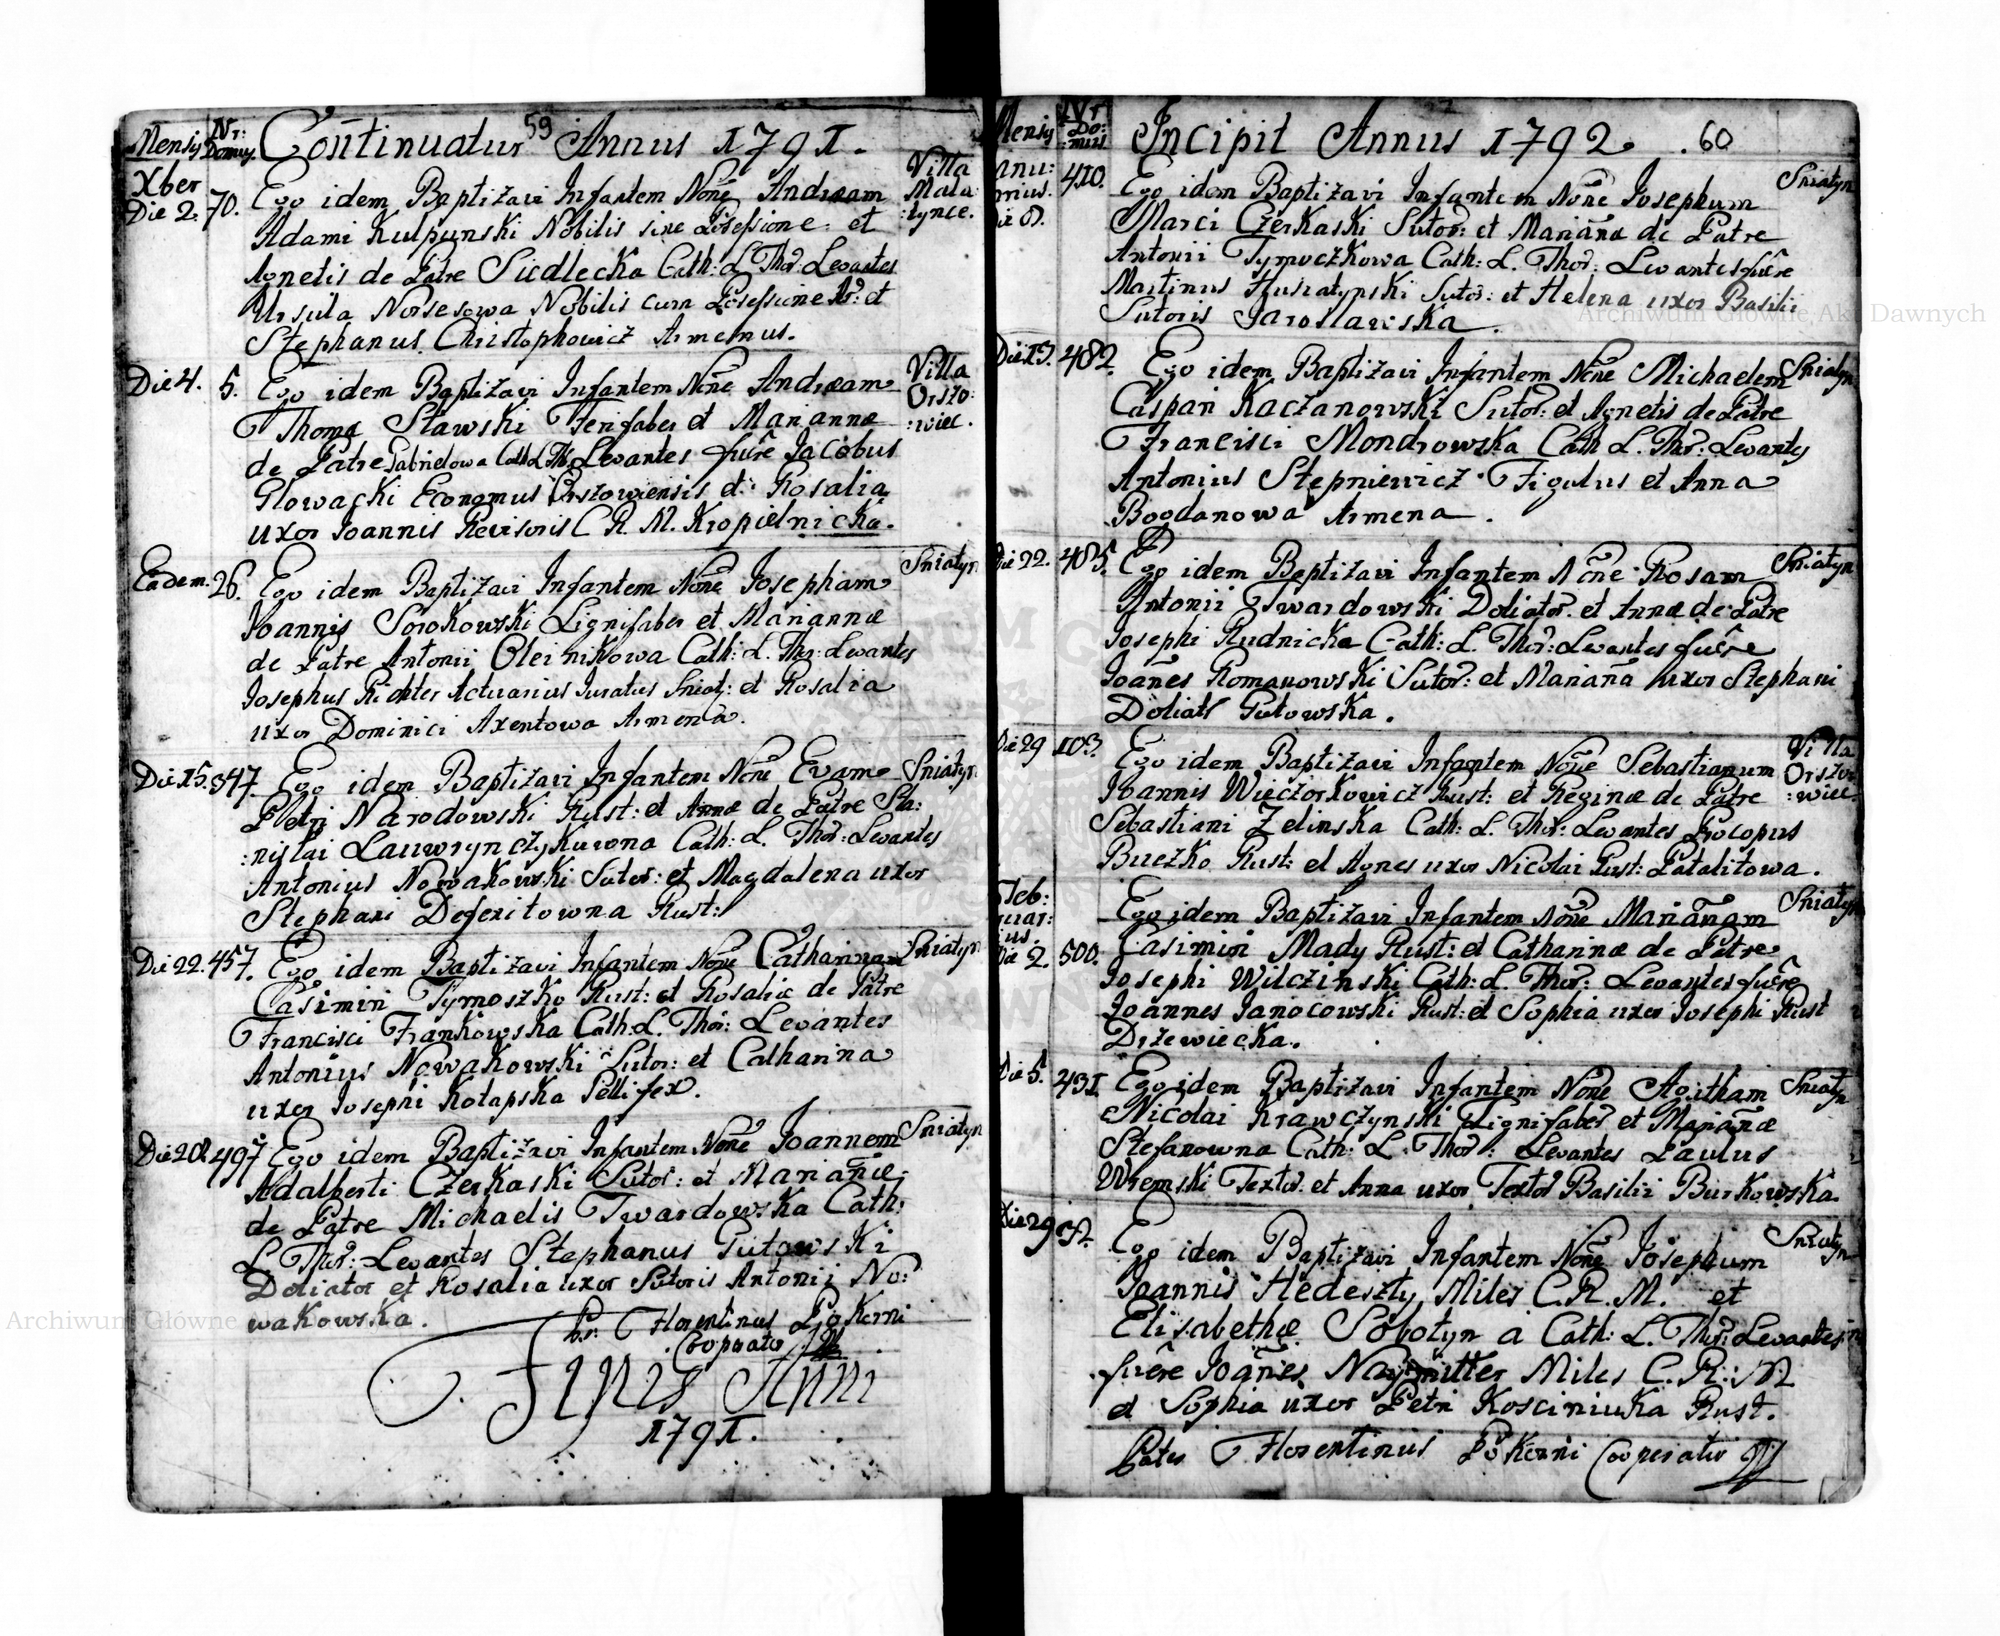 59
Mensis Nr: Domus. Continuatur Annus 1791.
Xber Die 2. 70. Ego idem Baptizavi Infantem Noñe Andream Villa Mala:
Adami Kulpunski Nobilis sine Possessione et :tynce.
Agnetis de Patre Siedlecka Cath: L. Thor: Levantes
Ursula Norsesowa Nobilis cum Possessione Ar: et
Stephanus Christophowicz Armenus.
Die 4. 5. Ego idem Baptizavi Infantem Noñe Andream Villa
Thoma Stawski Ferifaber et Marianna Orszo:
de Patre Gabrielowa Cath L Thr. Levantes fuêre Jacobus :wiec.
Glowacki Economus Orszowiensis et Rosalia
uxor Joannis Revisoris C. R. M. Kropielnicka.
Eadem. 26. Ego idem Baptizavi Infantem Noñe Josepham Sniatyn
Joannis Sorokowski Lignifaber et Mariannæ
de Patre Antonii Oleinikowa Cath: L. Thor: Levantes
Josephus Richter Actuarius Juratus Sniat: et Rosalia
uxor Dominici Axentowa Armena.
Die 15. 347. Ego idem Baptizavi Infantem Noñe Evam Sniatyn
Petri Narodowski Rust: et Annæ de Patre Sta:
:nislai Lauwrynczykuwna Cath: L. Thor: Levantes
Antonius Nowakowski Sutor: et Magdalena uxor
Stephani Deferitowna Rust:
Die 22. 457. Ego idem Baptizavi Infantem Noñe Catharinam Sniatyn
Casimiri Tymoszko Rust: et Rosaliæ de Patre
Francisci Frankowska Cath: L. Thor: Levantes
Antonius Nowakowski Sutor: et Catharina
uxor Josephi Kotapska Pellifex.
Die 28. 497. Ego idem Baptizavi Infantem Noñe Joannem Sniatyn
Adalberti Czerkaski Sutor: et Marianæ
de Patre Michaelis Twardowska Cath:
L. Thor: Levantes Stephanus Gutowski
Doliator et Rosalia uxor Sutoris Antonii No:
wakowska.
Pr. Florentinus Pokorni
Cooperator
Finis Anni
1791.
Mensis Nr Do: :mus Incipit Annus 1792. .60
410. Ego idem Baptizavi Infantem Noñe Josephum Sniatyn
Marci Czerkaski Sutor: et Mariañæ de Patre
Antonii Tymoczkowa Cath: L. Thor: Levantes fuêre
Martinus Husiatynski Sutor: et Helena uxor Basilii
Sutoris Jaroslawska.
Die 13. 482. Ego idem Baptizavi Infantem Noñe Michaelem Sniatyn
Caspari Kaczanowski Sutor: et Agnetis de Patre
Francisci Mondrowska Cath L. Thor: Levantes
Antonius Stepniewicz Figulus et Anna
Bogdanowa Armena.
Die 22. 485. Ego idem Baptizavi Infantem Noñe Rosam Sniatyn
Antonii Twardowski Doliator. et Annæ de Patre
Josephi Rudnicka Cath: L. Thor: Levantes fuêre
Joañes Romanowski Sutor: et Mariaña uxor Stephani
Doliatr Gutowska.
Die 29 103. Ego idem Baptizavi Infantem Noñe Sebastianum Villa
Joannis Wieczorkowicz Rust: et Reginæ de Patre Orszo
Sebastiani Zelinska Cath: L. Thor: Levantes Procopus :wiec.
Buczko Rust: et Agnes uxor Nicolai Rust: Patalitowa.
Feb: :ruar: :ius. Ego idem Baptizavi Infantem Noñe Mariañam Sniatyn
Die 2. 500. Casimiri Mady Rust: et Catharinæ de Patre
Josephi Wilczinski Cath: L. Thor: Levantes fuêre
Joannes Janocowski Rust: et Sophia uxor Josephi Rust
Drzewiecka.
Die 5. 431. Ego idem Baptizavi Infantem Noñe Agitham Sniatyn
Nicolai Krawczynski Lignifaber et Mariañæ
Stefanowna Cath: L. Thor: Levantes Paulus
Wremski Textor. et Anna uxor Textor Basilii Burkowska.
Die 29 Ego idem Baptizavi Infantem Noñe Josephum Sniatyn
Joannis Hedeszty Miles C. R. M. et
Elisabethæ Sobotyn a Cath: L. Thor: Levantes
fuêre Joañes Miles C. R: M
et Sophia uxor Petri Kosciniuka Rust.
Pater Florentinus Pokorni Cooperator
Archiwum Główne Akt Dawnych
Archiwum Główne